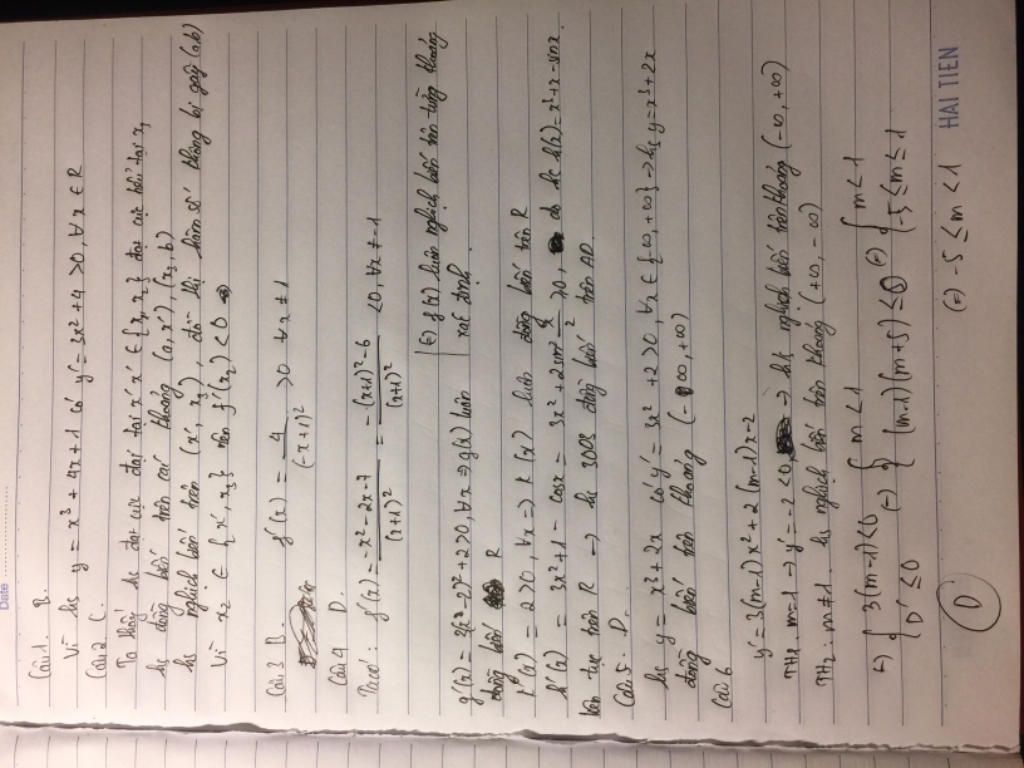 Date
Câu 1. B.
Vì hs y = x³ + 4x + 1 có y' = 3x² + 4 > 0, ∀x ∈ R
Câu 2 C.
Ta thấy hs đạt cực đại tại x' x' ∈ {x, x₃} đạt cực tiểu tại x₃
hs đồng biến trên các khoảng (a, x'), (x₃, b)
hs nghịch biến trên (x', x₃), đồ thị hàm số không bị gãy (a,b)
Vì x₂ ∈ {x', x₃} nên f'(x₂) < 0
Câu 3 B. f'(x) = 4 / (-x+1)² > 0 ∀x ≠ 1
Câu 4 D.
Ta có: f'(x) = -x² - 2x - 7 / (x+1)² = -(x+1)² - 6 / (x+1)² < 0, ∀x ≠ -1
(=) f(x) luôn nghịch biến trên từng khoảng
xác định
g'(x) = 3(x² - 2)² + 2 > 0, ∀x => g(x) luôn
đồng biến R
'(x) = 2 > 0, ∀x => (x) luôn đồng biến trên R
h'(x) = 3x² + 1 - cosx = 3x² + 2sin² x/2 ≥ 0, hs h(x) = x³ + x - sinx
liên tục trên R → hs đồng biến trên
Câu 5. D.
hs y = x³ + 2x có y' = 3x² + 2 > 0, ∀x ∈ {-∞, +∞} → hs y = x³ + 2x
đồng biến trên khoảng (-∞, +∞)
Câu 6
y' = 3(m-1)x² + 2(m-1)x - 2
TH1. m = 1 → y' = -2 < 0 → hs nghịch biến trên khoảng (-∞, +∞)
TH2: m ≠ 1. hs nghịch biến trên khoảng (+∞, -∞)
(=) { 3(m-1) < 0 (=) { m < 1
D' ≤ 0 (m-1)(m+5) ≤ 0 (=) { m < 1
-5 ≤ m ≤ 1
(=) -5 ≤ m < 1
D
HAI TIEN